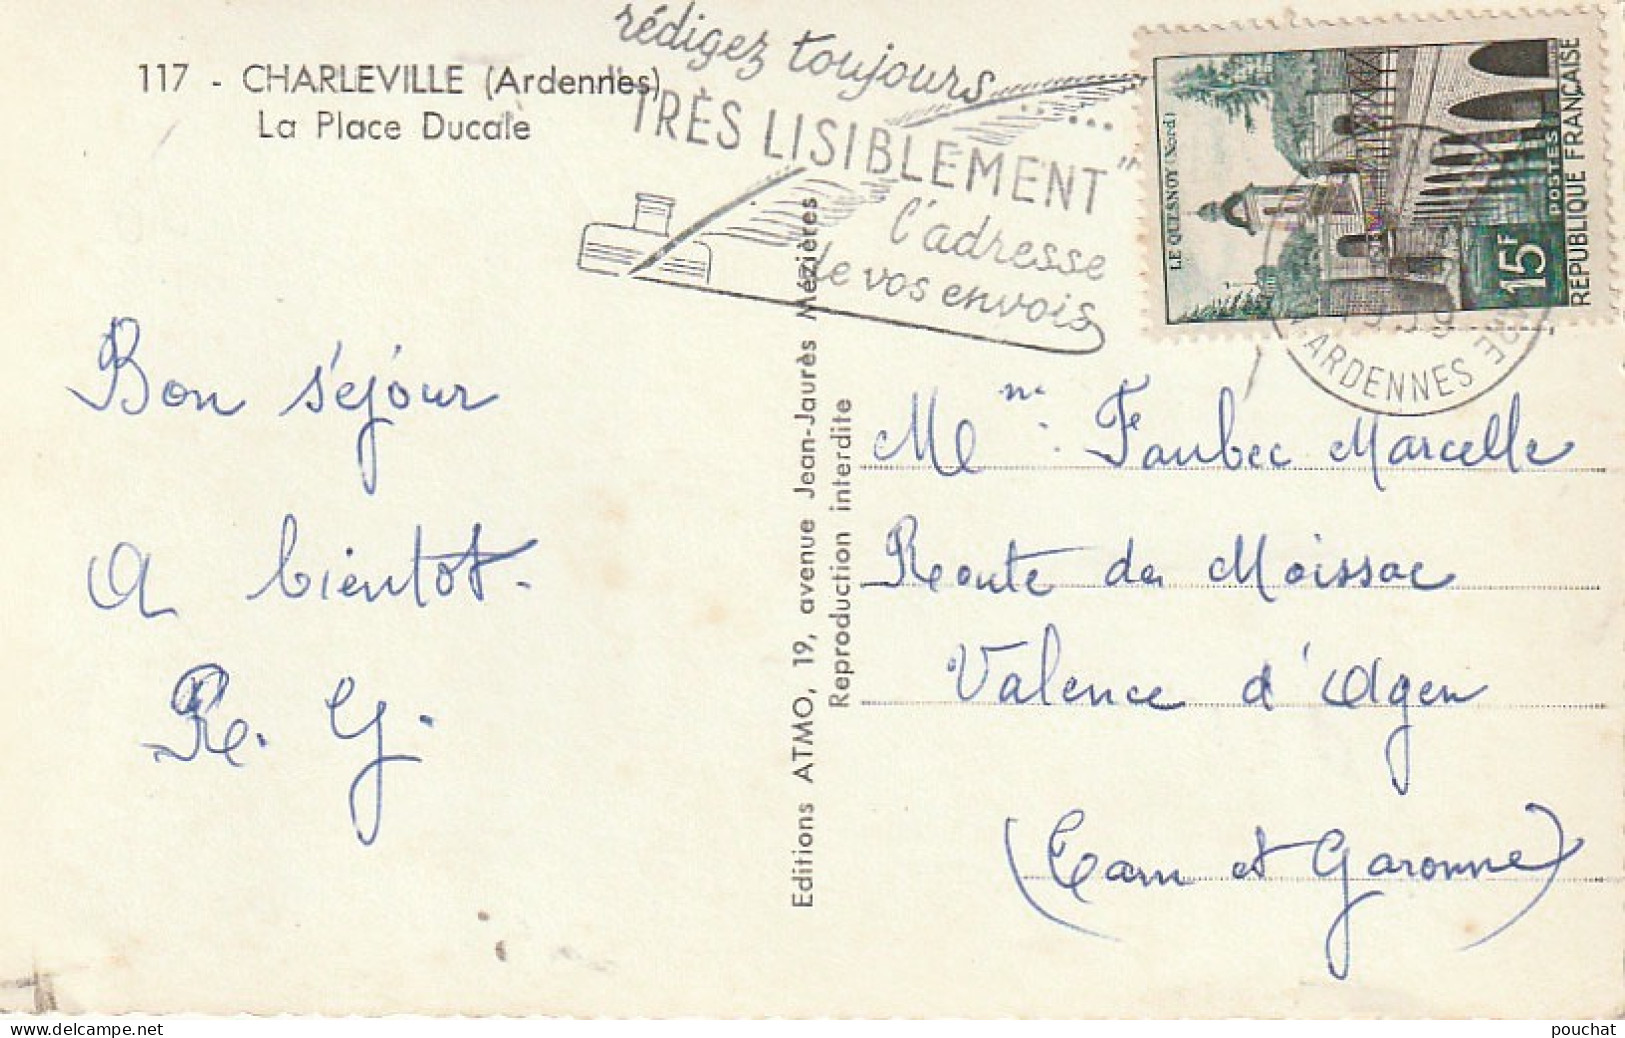 117 - CHARLEVILLE (Ardennes)
La Place Ducale
rédigez toujours
TRÈS LISIBLEMENT"
l'adresse
de vos envois
LE QUESNOY (Nord)
15F
POSTES
REPUBLIQUE FRANÇAISE
ARDENNES
Bon séjour
A bientot.
R. G.
Editions ATMO, 19, avenue Jean-Jaurès Mézières
Reproduction interdite
Mme Faubec Marcelle
Route de Moissac
Valence d'Agen
(Tarn et Garonne)
delcampe.net
pouchat